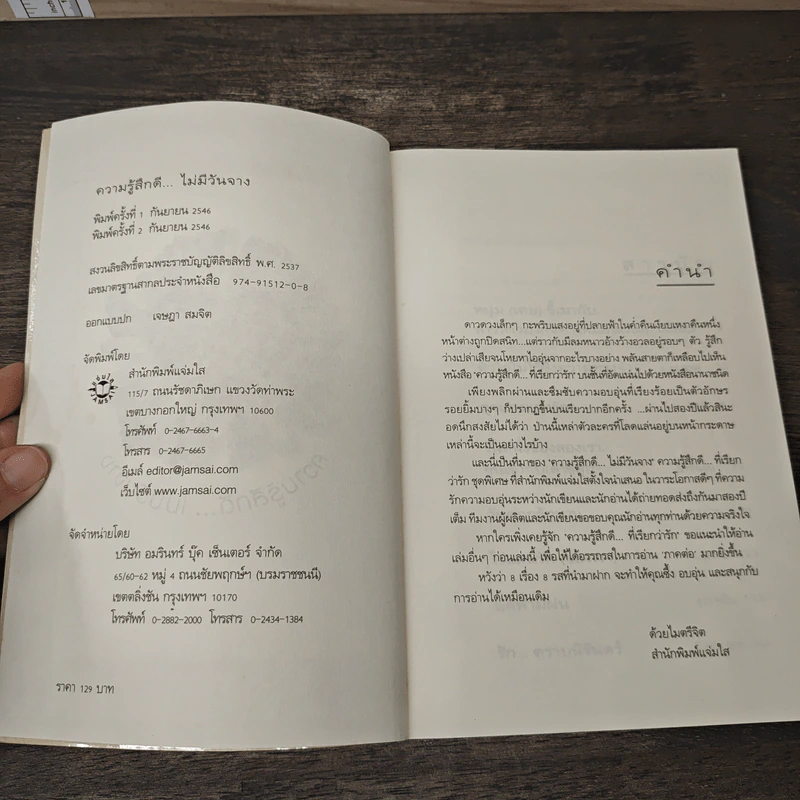 ความรู้สึกดี... ไม่มีวันจาง
พิมพ์ครั้งที่ 1 กันยายน 2546
พิมพ์ครั้งที่ 2 กันยายน 2546
สงวนลิขสิทธิ์ตามพระราชบัญญัติลิขสิทธิ์ พ.ศ. 2537
เลขมาตรฐานสากลประจำหนังสือ 974-91512-0-8
ออกแบบปก เจษฎา สมจิต
จัดพิมพ์โดย
สำนักพิมพ์แจ่มใส
115/7 ถนนรัชดาภิเษก แขวงวัดท่าพระ
เขตบางกอกใหญ่ กรุงเทพฯ 10600
โทรศัพท์ 0-2467-6663-4
โทรสาร 0-2467-6665
อีเมล์ editor@jamsai.com
เว็บไซต์ www.jamsai.com
จัดจำหน่ายโดย
บริษัท อมรินทร์ บุ๊ค เซ็นเตอร์ จำกัด
65/60-62 หมู่ 4 ถนนชัยพฤกษ์ฯ (บรมราชชนนี)
เขตตลิ่งชัน กรุงเทพฯ 10170
โทรศัพท์ 0-2882-2000 โทรสาร 0-2434-1384
ราคา 129 บาท
คำนำ
ดาวดวงเล็กๆ กะพริบแสงอยู่ที่ปลายฟ้าในค่ำคืนเงียบเหงาคืนหนึ่ง
หน้าต่างถูกปิดสนิท...แต่ราวกับมีลมหนาวอ้างว้างอวลอยู่รอบๆ ตัว รู้สึก
ว่างเปล่าเสียจนโหยหาไออุ่นจากอะไรบางอย่าง พลันสายตาก็เหลือบไปเห็น
หนังสือ 'ความรู้สึกดี... ที่เรียกว่ารัก' บนชั้นที่อัดแน่นไปด้วยหนังสือนานาชนิด
เพียงพลิกผ่านและซึมซับความอบอุ่นที่เรียงร้อยเป็นตัวอักษร
รอยยิ้มบางๆ ก็ปรากฏขึ้นบนเรียวปากอีกครั้ง ...ผ่านไปสองปีแล้วสินะ
อดนึกสงสัยไม่ได้ว่า ป่านนี้เหล่าตัวละครที่โลดแล่นอยู่บนหน้ากระดาษ
เหล่านี้จะเป็นอย่างไรบ้าง
และนี่เป็นที่มาของ 'ความรู้สึกดี... ไม่มีวันจาง' ความรู้สึกดี... ที่เรียก
ว่ารัก ชุดพิเศษ ที่สำนักพิมพ์แจ่มใสตั้งใจนำเสนอ ในวาระโอกาสดีๆ ที่ความ
รักความอบอุ่นระหว่างนักเขียนและนักอ่านได้ถ่ายทอดส่งถึงกันมาสองปี
เต็ม ทีมงานผู้ผลิตและนักเขียนขอขอบคุณนักอ่านทุกท่านด้วยความจริงใจ
หากใครเพิ่งเคยรู้จัก 'ความรู้สึกดี... ที่เรียกว่ารัก' ขอแนะนำให้อ่าน
เล่มอื่นๆ ก่อนเล่มนี้ เพื่อให้ได้อรรถรสในการอ่าน 'ภาคต่อ' มากยิ่งขึ้น
หวังว่า 8 เรื่อง 8 รสที่นำมาฝาก จะทำให้คุณซึ้ง อบอุ่น และสนุกกับ
การอ่านได้เหมือนเดิม
ด้วยไมตรีจิต
สำนักพิมพ์แจ่มใส